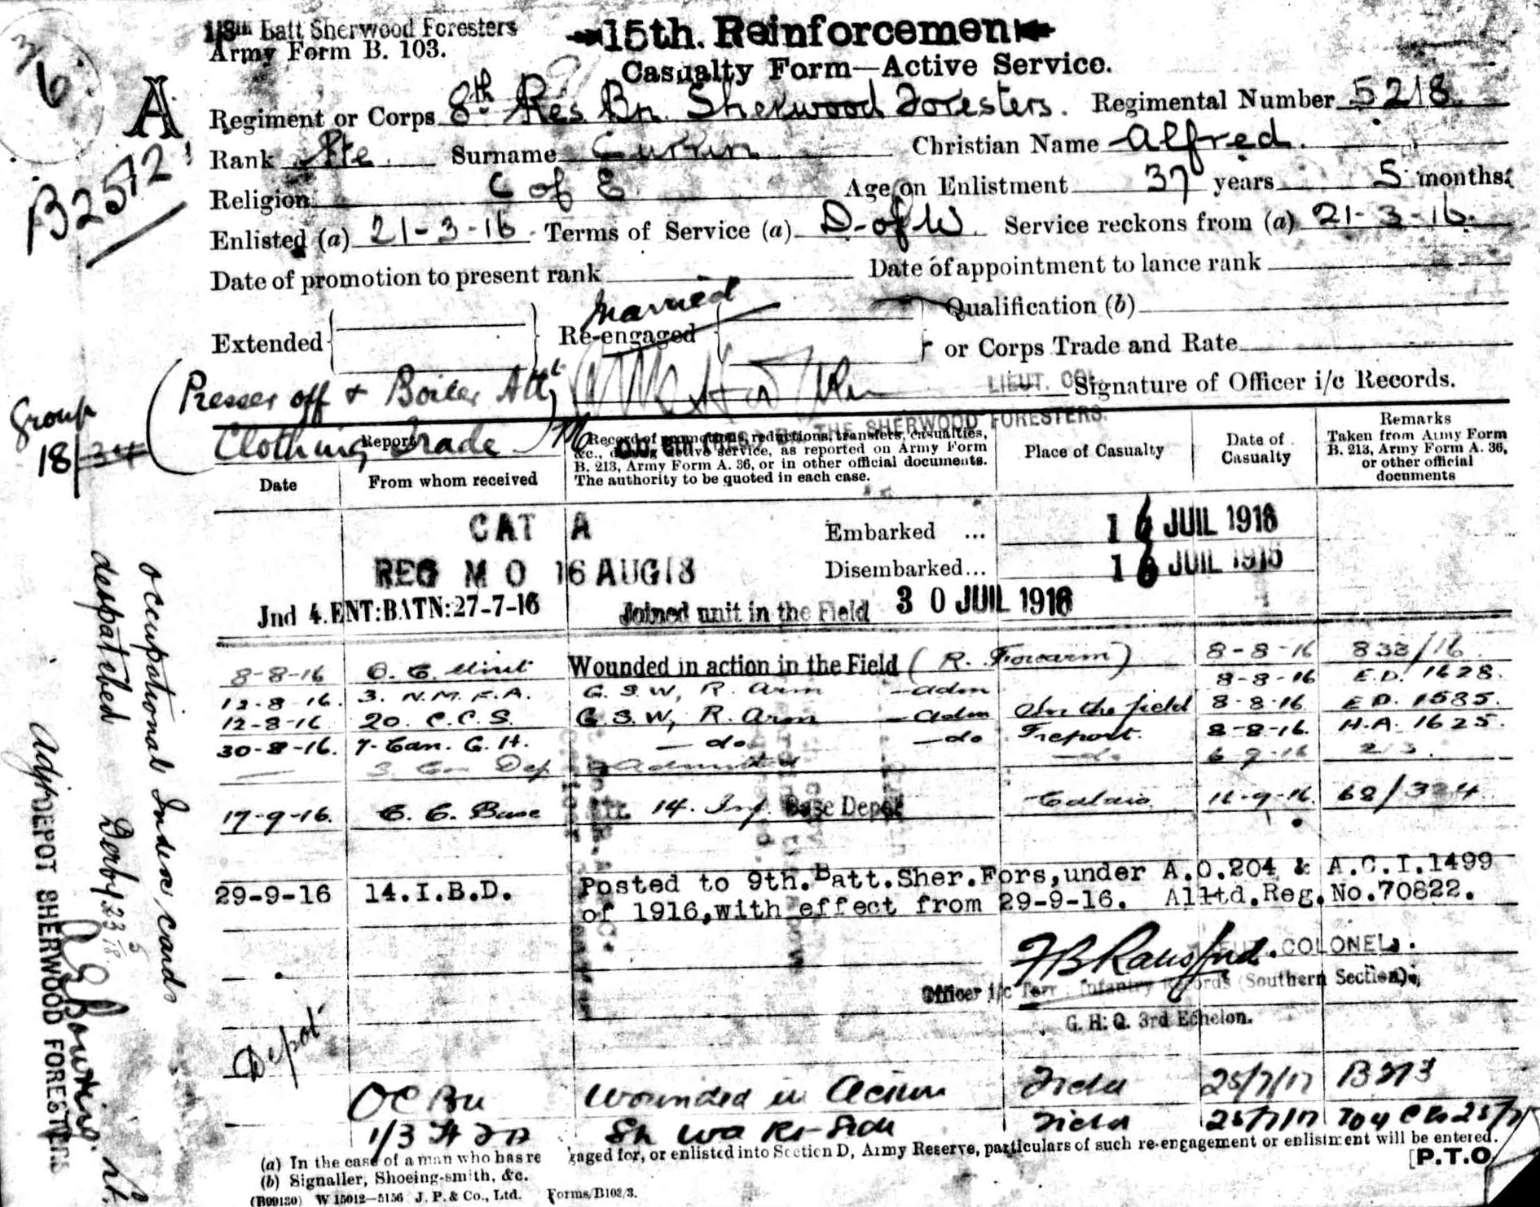 1/8th Batt Sherwood Foresters
15th. Reinforcement
Army Form B. 103.
Casualty Form—Active Service.
A
B2572
Regiment or Corps 8th Res Bn. Sherwood Foresters. Regimental Number 5218
Rank Pte Surname Currin Christian Name Alfred.
Religion C of E Age on Enlistment 37 years 5 months.
Enlisted (a) 21-3-16. Terms of Service (a) D. of W Service reckons from (a) 21-3-16.
Date of promotion to present rank Date of appointment to lance rank
Married
Extended Re-engaged Qualification (b)
or Corps Trade and Rate
Presser off & Boiler Attt
LIEUT. COL. Signature of Officer i/c Records.
Clothing Trade
THE SHERWOOD FORESTERS.
Group
18/34
Report
Date
From whom received
Record of promotions, reductions, transfers, casualties,
&c., during active service, as reported on Army Form
B. 213, Army Form A. 36, or in other official documents.
The authority to be quoted in each case.
Place of Casualty
Date of
Casualty
Remarks
Taken from Army Form
B. 213, Army Form A. 36,
or other official
documents
CAT A Embarked ... 16 JUIL 1916
REG M O 16 AUG 18 Disembarked... 16 JUIL 1916
Jnd 4.ENT:BATN:27-7-16 Joined unit in the Field 30 JUIL 1916
8-8-16 O. C. Unit Wounded in action in the Field (R. Forearm) 8-8-16 833/16
12-8-16. 3. N.M.F.A. G.S.W, R. Arm —adm 8-8-16 E.D. 1628.
12-8-16 20. C.C.S. G.S.W, R. Arm —adm In the field 8-8-16 E.D. 1535.
30-8-16. 7. Can. G. H. —do —do Treport. 8-8-16. H.A. 1625.
— 3. Con Dep Admitted —do. 6 9-16 213.
17-9-16. C. C. Base 14. Inf Base Depot Calais 16-9-16 68/324
29-9-16 14.I.B.D. Posted to 9th.Batt.Sher.Fors,under A.O.204 & A.C.I.1499
of 1916,with effect from 29-9-16. Alltd.Reg.No.70822.
F B Ransford. LIEUT. COLONEL.
Officer i/c Terr. Infantry Records (Southern Section),
G. H. Q. 3rd Echelon.
Depot
OC Bn Wounded in Action Field 25/7/17 B 213
1/3 Fd Field 25/7/17
(a) In the case of a man who has re-engaged for, or enlisted into Section D, Army Reserve, particulars of such re-engagement or enlistment will be entered.
(b) Signaller, Shoeing-smith, &c. [P.T.O.
W 15012—5156 J. P. & Co., Ltd. Forms/B103/3.
occupational Index cards
despatched Derby
Adj/DEPOT SHERWOOD FORESTERS